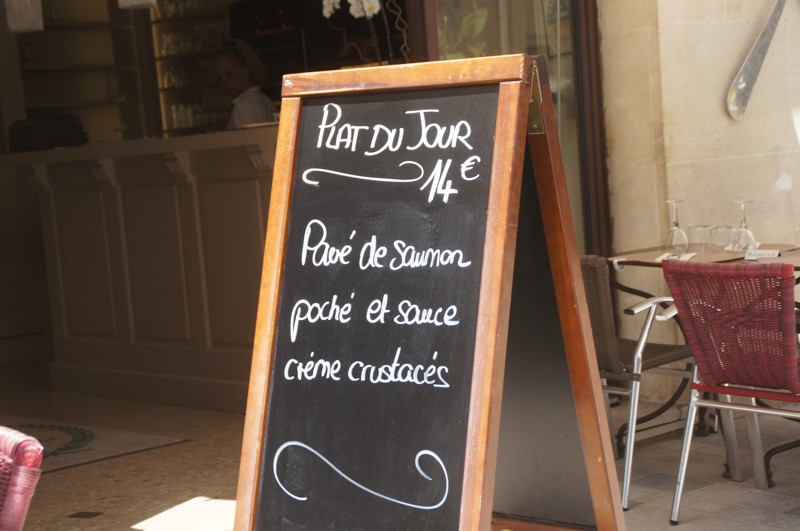 PLAT DU JOUR
14€
Pavé de saumon
poché et sauce
crème crustacés